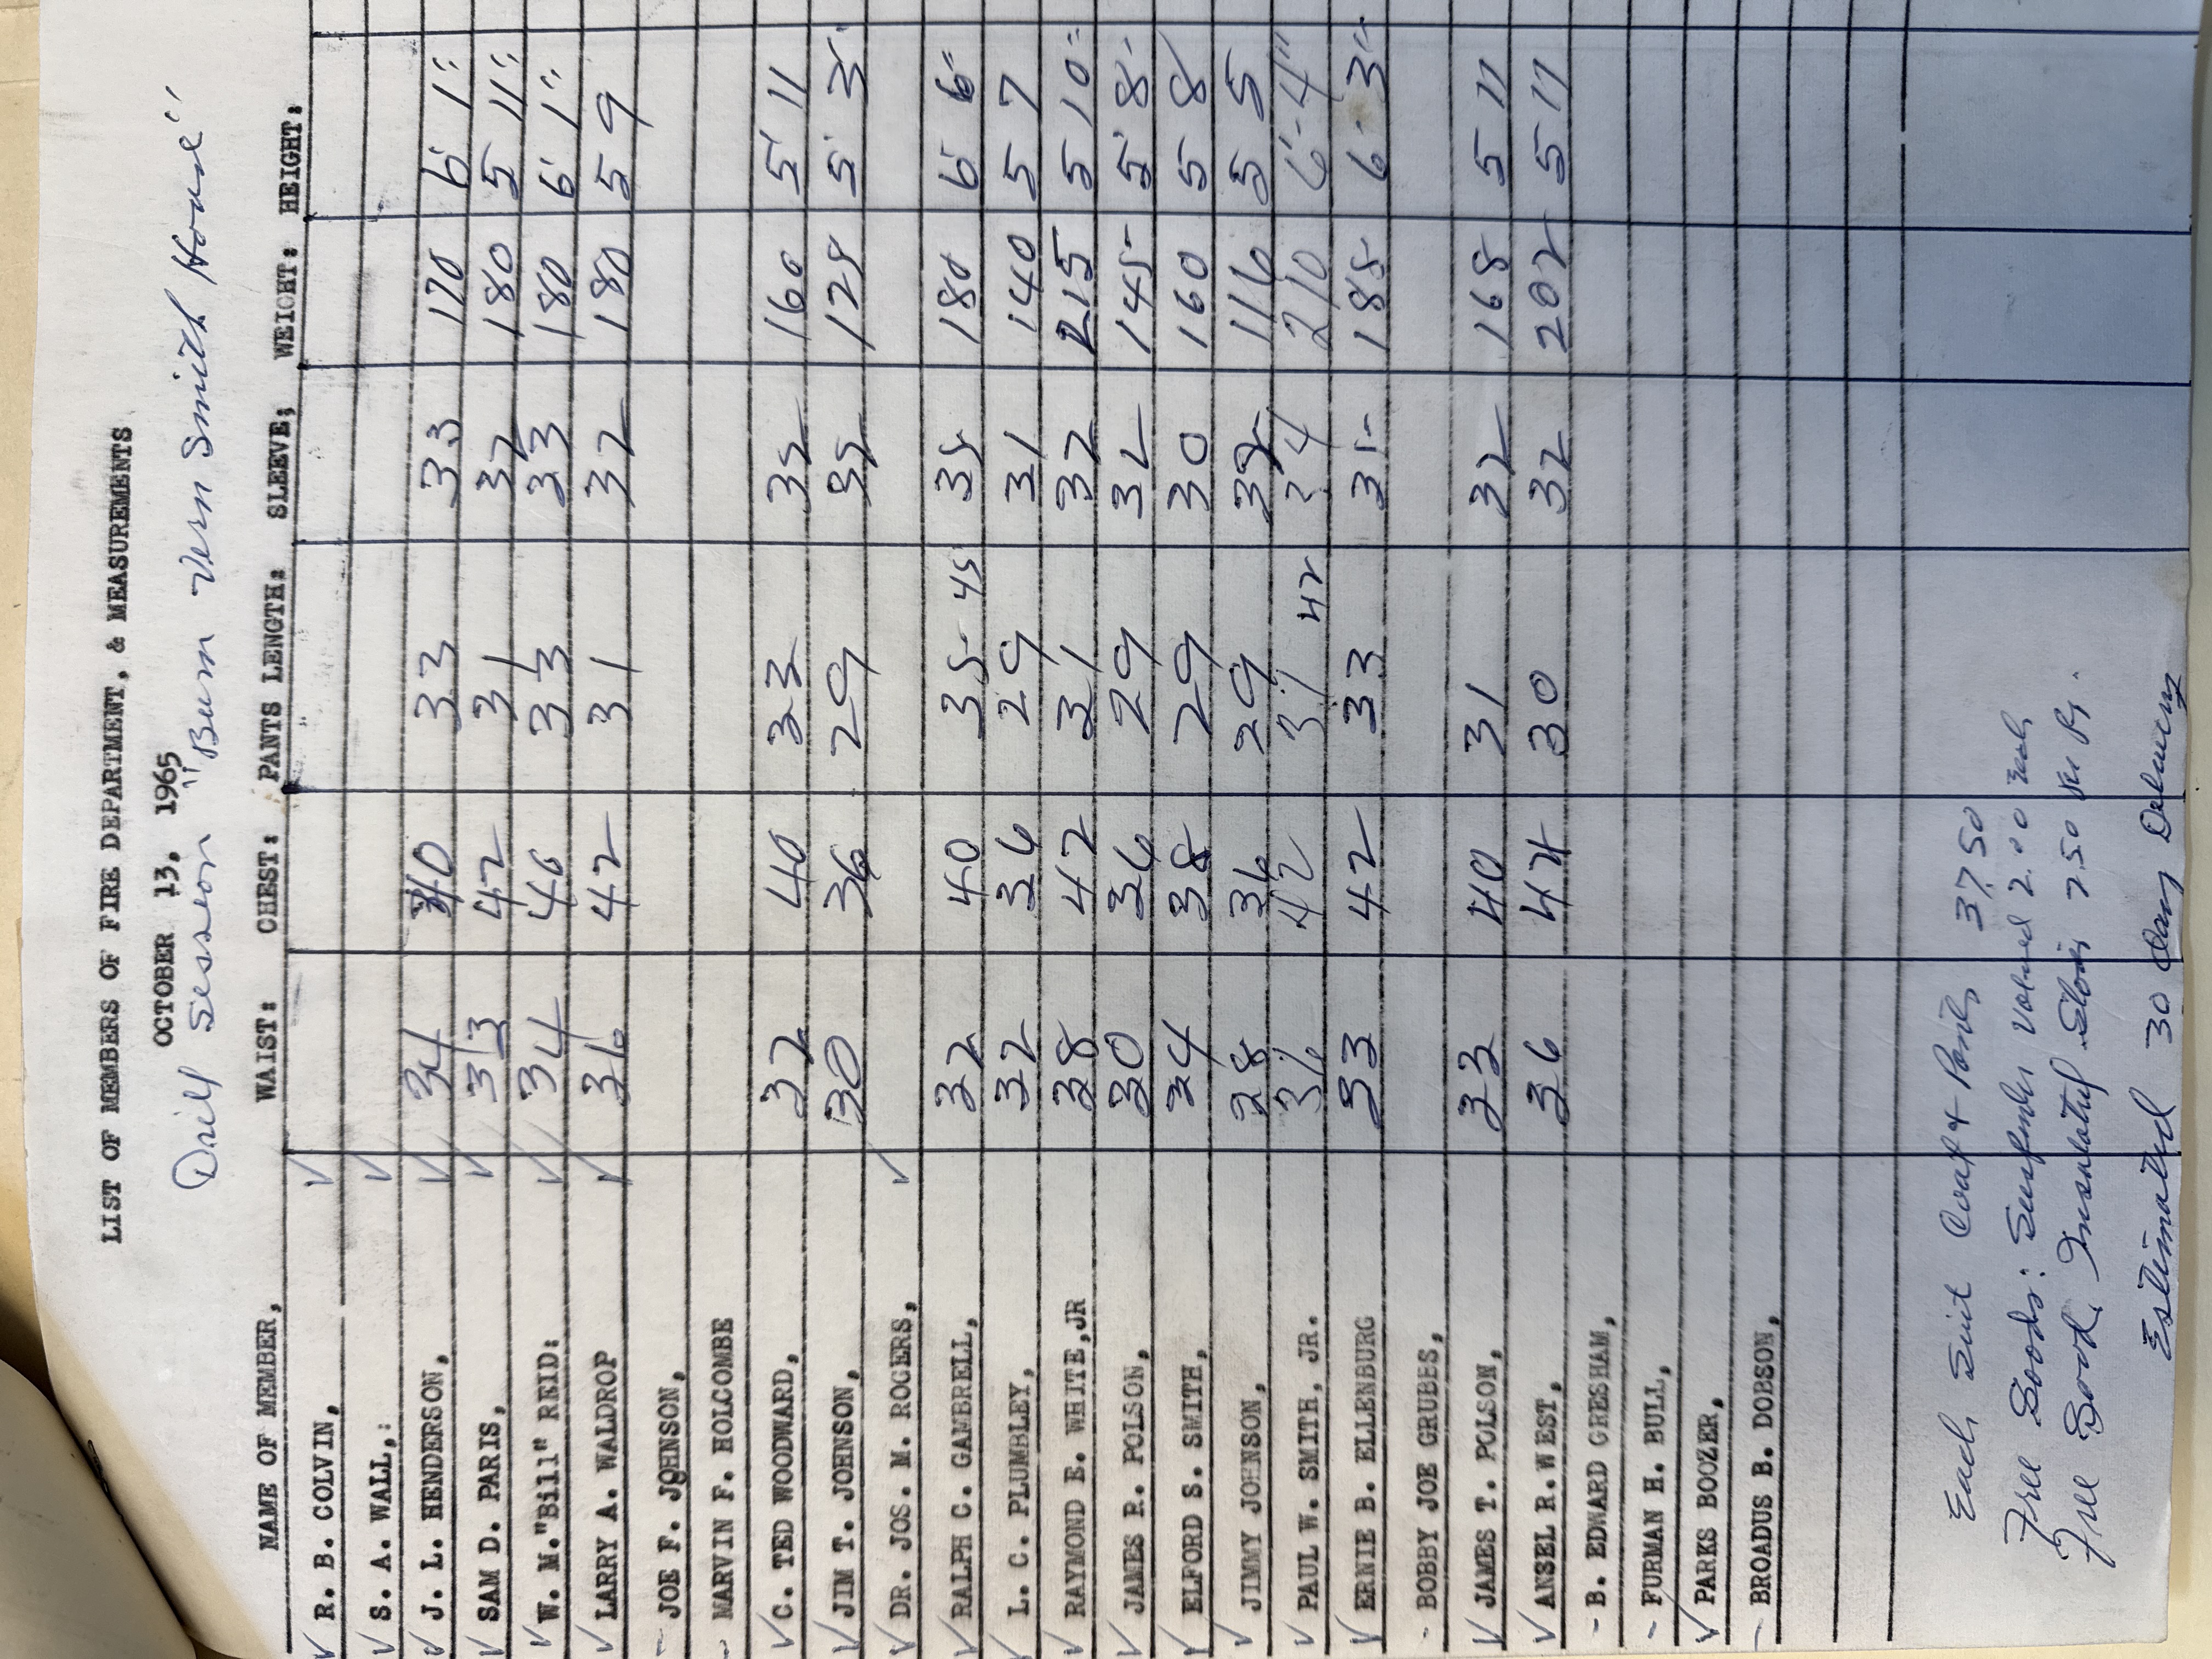 LIST OF MEMBERS OF FIRE DEPARTMENT, & MEASUREMENTS
OCTOBER 13, 1965
Drill Session "Burn Vern Smith House"
NAME OF MEMBER, WAIST: CHEST: PANTS LENGTH: SLEEVE; WEIGHT: HEIGHT:
✓ R. B. COLVIN, ✓
✓ S. A. WALL,: ✓
✓ J. L. HENDERSON, ✓ 34 40 33 33 170 6' 1"
✓ SAM D. PARIS, ✓ 33 42 31 32 180 5 11"
✓ W. M."Bill" REID: ✓ 34 40 33 33 180 6' 1"
✓ LARRY A. WALDROP ✓ 36 42 31 32 180 5 9
- JOE F. JOHNSON,
- MARVIN F. HOLCOMBE
✓ C. TED WOODWARD, 32 40 33 32 160 5' 11
✓ JIM T. JOHNSON, 30 36 29 32 129 5' 3"
✓ DR. JOS. M. ROGERS, ✓
✓ RALPH C. GAMBRELL, 32 40 35 45 35 180 6' 6"
✓ L. C. PLUMBLEY, 32 36 29 31 140 5 7
✓ RAYMOND E. WHITE,JR 38 42 31 32 215 5 10"
✓ JAMES R. POLSON, 30 36 29 32 145 5' 8"
✓ ELFORD S. SMITH, 34 38 29 30 160 5 8
✓ JIMMY JOHNSON, 28 36 29 32 116 5 5
✓ PAUL W. SMITH, JR. 36 42 37 42 34 210 6'-4"
✓ ERNIE B. ELLENBURG 33 42 33 35 185 6- 3"
- BOBBY JOE GRUBBS,
✓ JAMES T. POLSON, 33 40 31 32 168 5 11
✓ ANSEL R.WEST, 36 44 30 32 202 5 11
- B. EDWARD GRESHAM,
- FURMAN H. BULL,
✓ PARKS BOOZER,
- BROADUS B. DOBSON,
Each Suit Coat & Pants 37.50
Free Goods: Suspender Valued 2.00 Each
Free Good, Insulated Gloves 7.50 Per Pr.
Estimated 30 Day Delivery